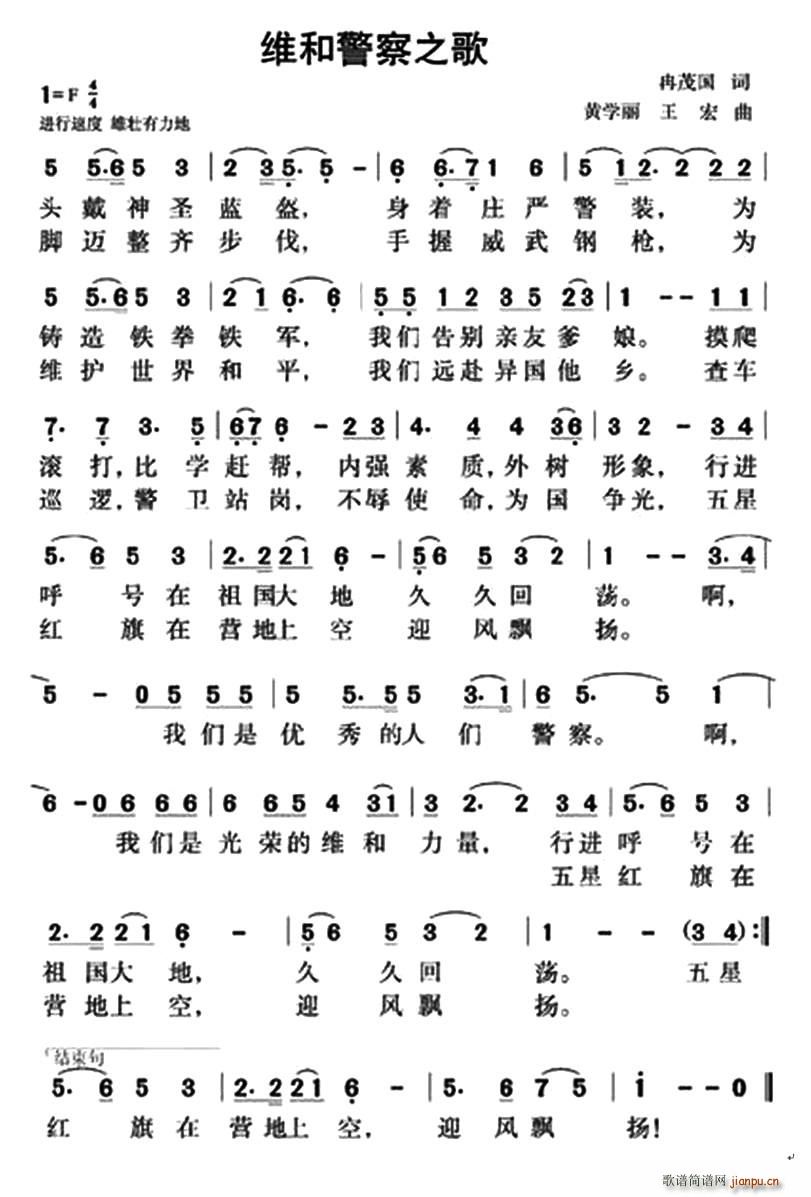 维和警察之歌
1=F 4/4
冉茂国 词
进行速度 雄壮有力地
黄学丽 王宏 曲
5 5·6 5 3 | 2 3 5· 5 - 6 | 6·7 1 6 | 5 1 2· 2 2 2 |
头戴神圣蓝盔， 身着庄严警装，为
脚迈整齐步伐， 手握威武钢枪，为
5 5·6 5 3 | 2 1 6· 6 | 5 5 1 2 3 5 2 3 | 1 - - 1 1 |
铸造铁拳铁军， 我们告别亲友爹娘。摸爬
维护世界和平， 我们远赴异国他乡。查车
7· 7 3· 5 | 6 7 6 - 2 3 | 4· 4 4 3 6 | 3 2 - 3 4 |
滚打，比学赶帮，内强素质，外树形象，行进
巡逻，警卫站岗，不辱使命，为国争光，五星
5· 6 5 3 | 2·2 2 2 1 6 - | 5 6 5 3 2 | 1 - - 3·4 |
呼号在祖国大地 久久回荡。啊，
红旗在营地上空 迎风飘扬。
5 - 0 5 5 5 | 5 5·5 3·1 | 6 5· 5 1 |
我们是优秀的人们警察。啊，
6 - 0 6 6 6 6 | 6 6 5 4 3 1 | 3 2· 2 3 4 | 5· 6 5 3 |
我们是光荣的维和力量，行进呼号在
五星红旗在
2·2 2 2 1 6 - | 5 6 5 3 2 | 1 - - (3 4) :‖
祖国大地， 久久回荡。 五星
营地上空， 迎风飘扬。
结束句
5· 6 5 3 | 2·2 2 2 1 6 - | 5· 6 6 7 5 | i - - 0 ‖
红旗在营地上空， 迎风飘扬！
歌谱简谱网
jianpu.cn